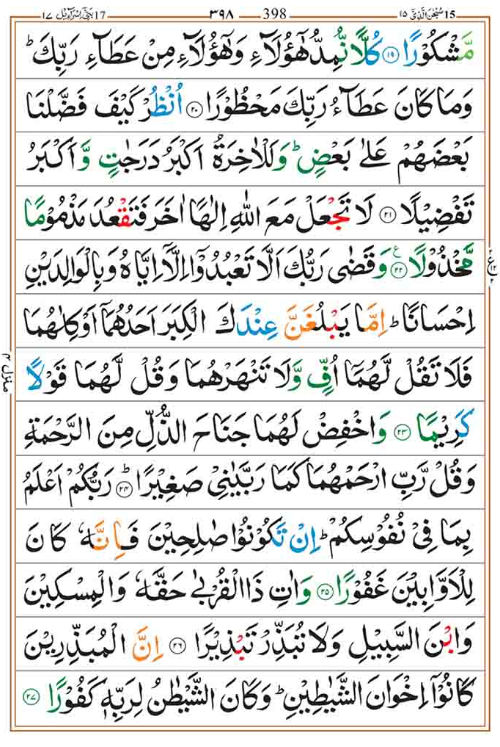 بنی اسرآءیل 17 ١٧ 398 ٣٩٨ سبحن الذی 15 ١٥
مَّشْكُوْرًا ۝١٩ كُلًّا نُّمِدُّ هٰٓؤُلَآءِ وَهٰٓؤُلَآءِ مِنْ عَطَآءِ رَبِّكَ ؕ
وَمَا كَانَ عَطَآءُ رَبِّكَ مَحْظُوْرًا ۝٢٠ اُنْظُرْ كَيْفَ فَضَّلْنَا
بَعْضَهُمْ عَلٰى بَعْضٍ ؕ وَلَلْاٰخِرَةُ اَكْبَرُ دَرَجٰتٍ وَّاَكْبَرُ
تَفْضِيْلًا ۝٢١ لَا تَجْعَلْ مَعَ اللّٰهِ اِلٰهًا اٰخَرَ فَتَقْعُدَ مَذْمُوْمًا
مَّخْذُوْلًا ۝٢٢ ع وَقَضٰى رَبُّكَ اَلَّا تَعْبُدُوْۤا اِلَّاۤ اِيَّاهُ وَبِالْوَالِدَيْنِ
اِحْسَانًا ؕ اِمَّا يَبْلُغَنَّ عِنْدَكَ الْكِبَرَ اَحَدُهُمَاۤ اَوْ كِلٰهُمَا
فَلَا تَقُلْ لَّهُمَاۤ اُفٍّ وَّلَا تَنْهَرْهُمَا وَقُلْ لَّهُمَا قَوْلًا
كَرِيْمًا ۝٢٣ وَاخْفِضْ لَهُمَا جَنَاحَ الذُّلِّ مِنَ الرَّحْمَةِ
وَقُلْ رَّبِّ ارْحَمْهُمَا كَمَا رَبَّيٰنِيْ صَغِيْرًا ۝٢٤ؕ رَبُّكُمْ اَعْلَمُ
بِمَا فِيْ نُفُوْسِكُمْ ؕ اِنْ تَكُوْنُوْا صٰلِحِيْنَ فَاِنَّهٗ كَانَ
لِلْاَوَّابِيْنَ غَفُوْرًا ۝٢٥ وَاٰتِ ذَا الْقُرْبٰى حَقَّهٗ وَالْمِسْكِيْنَ
وَابْنَ السَّبِيْلِ وَلَا تُبَذِّرْ تَبْذِيْرًا ۝٢٦ اِنَّ الْمُبَذِّرِيْنَ
كَانُوْۤا اِخْوَانَ الشَّيٰطِيْنِ ؕ وَكَانَ الشَّيْطٰنُ لِرَبِّهٖ كَفُوْرًا ۝٢٧
منزل ٤